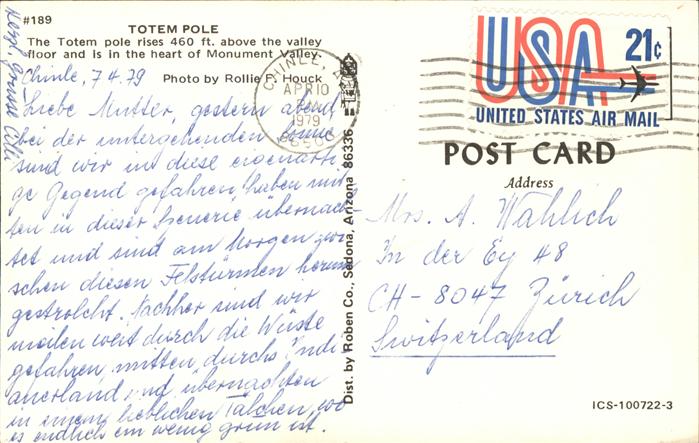 #189
TOTEM POLE
The Totem pole rises 460 ft. above the valley
floor and is in the heart of Monument Valley.
Photo by Rollie F. Houck
Chinle, 7.4.79
Liebe Mutter, gestern abend
bei der untergehenden Sonne
sind wir in diese eigenarti-
ge Gegend gefahren, haben mit-
ten in dieser Scenerie übernach-
tet und sind am Morgen zwi-
schen diesen Felstürmen herum
gestrolcht. Nachher sind wir
meilenweit durch die Wüste
gefahren, mitten durchs Indi-
anerland und übernachten
in einem lieblichen Tälchen, wo
es endlich ein wenig grün ist.
Herzl. Grüsse
Dist. by Roben Co., Sedona, Arizona 86336
CHINLE, A
APR 10
1979
86503
USA 21c
UNITED STATES AIR MAIL
POST CARD
Address
Mrs. A. Wahlich
In der Ey 48
CH-8047 Zürich
Switzerland
ICS-100722-3